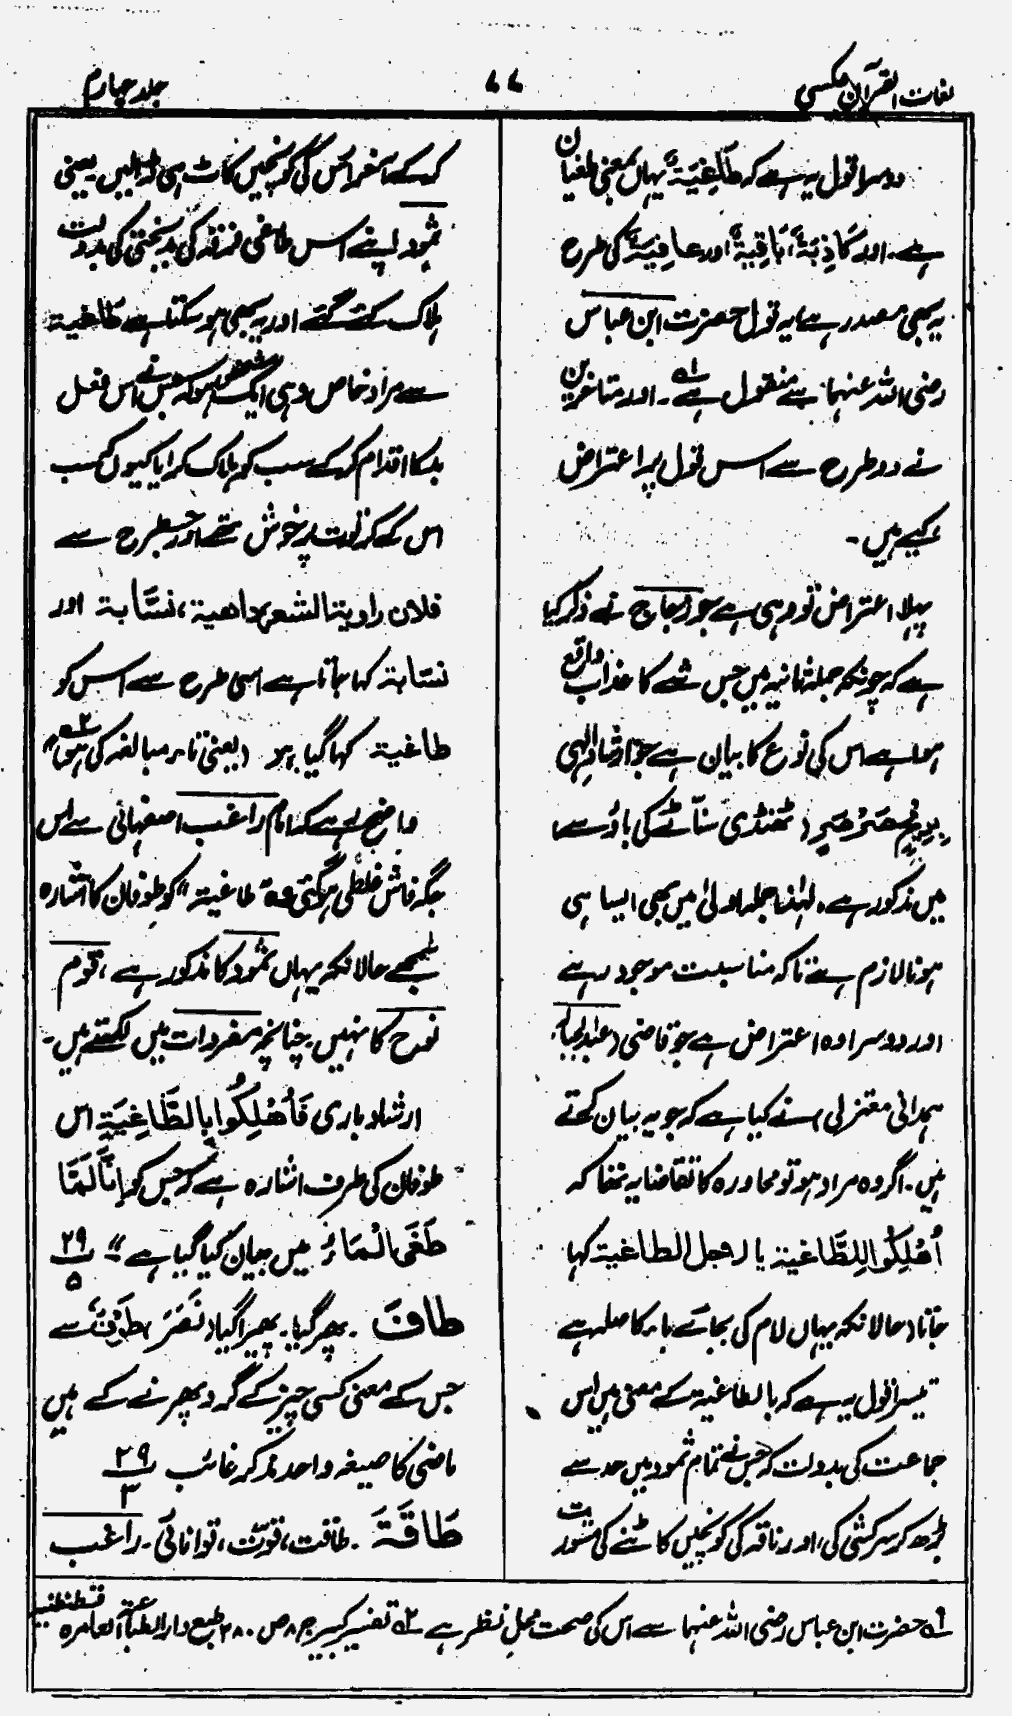 لغات القرآن عکسی
۷۷
جلد چہارم
دوسرا قول یہ ہے کہ طَاغِیَۃٌ یہاں بمعنی طغیان
ہے۔ اور کَاذِبَۃٌ، بَاقِیَۃٌ اور عافِیَۃٌ کی طرح
یہ بھی مصدر ہے، یہ قول حضرت ابن عباس
رضی اللہ عنہما سے منقول ہے ۱؎۔ اور متاخرین
نے دو طرح سے اس قول پر اعتراض
کیے ہیں۔
پہلا اعتراض تو وہی ہے جو زجاج نے ذکر کیا
ہے کہ چونکہ جملہ ثانیہ میں جس شے کا عذاب واقع
ہوا ہے اس کی نوع کا بیان ہے جو ارشادِ الٰہی
بِرِیْحٍ صَرْصَرٍ (ٹھنڈی سناٹے کی باؤ سے)
میں مذکور ہے، لہٰذا جملہ اولیٰ میں بھی ایسا ہی
ہونا لازم ہے تاکہ مناسبت موجود رہے
اور دوسرا وہ اعتراض ہے جو قاضی (عبدالجبار
ہمدانی معتزلی) نے کیا ہے کہ جو یہ بیان کرتے
ہیں۔ اگر وہ مراد ہو تو محاورہ کا تقاضا یہ تھا کہ
اُھْلِکُوا لِلطَّاغیۃ یا لاجل الطاغیۃ کہا
جاتا (حالانکہ یہاں لام کی بجائے باء کا صلہ ہے
تیسرا قول یہ ہے کہ بالطاغیۃ کے معنی ہیں اس
جماعت کی بدولت کہ جس نے تمام ثمود میں حد سے
بڑھ کر سرکشی کی، اور ناقہ کی کونچیں کاٹنے کی مشورت
کر کے آخر اس کی کونچیں کاٹ ہی ڈالیں۔ یعنی
ثمود اپنے اس طاغی فرقہ کی بدبختی کی بدولت
ہلاک کئے گئے اور یہ بھی ہو سکتا ہے طاغیۃ
سے مراد خاص وہی ایک شخص ہو کہ جس نے اس فعل
بد کا اقدام کر کے سب کو ہلاک کرایا کیوں کہ سب
اس کے کرتوت پر خوش تھے اور جس طرح سے
فلان راویۃ الشعر، داھیۃ، نسّابۃ اور
نسّابۃ کہا جاتا ہے اسی طرح سے اس کو
طاغیۃ کہا گیا ہو (یعنی تاء مبالغہ کی ہو) ۲؎
واضح رہے کہ امام راغب اصفہانی سے اس
جگہ فاش غلطی ہو گئی وہ "طاغیۃ" کو طوفان کا اشارہ
سمجھے حالانکہ یہاں ثمود کا مذکور ہے، قوم
نوح کا نہیں۔ چنانچہ مفردات میں لکھتے ہیں۔
ارشاد باری فَاُھْلِکُوا بِالطَّاغِیَۃِ اس
طوفان کی طرف اشارہ ہے کہ جس کو اِنَّا لَمَّا
طَغَی الْمَاءُ میں بیان کیا گیا ہے" ۲۹/۵
طَافَ ۔ پھر گیا۔ پھیرا گیا (نَصَرَ) طَوْفٌ سے
جس کے معنی کسی چیز کے گرد پھرنے کے ہیں
ماضی کا صیغہ واحد مذکر غائب ۲۹/۳
طَاقَۃَ ۔ طاقت، قوّت، توانائی۔ راغب
۱؎ حضرت ابن عباس رضی اللہ عنہما سے اس کی صحت محلِ نظر ہے ۲؎ تفسیر کبیر ج ۸ ص ۲۸۰ طبع دار الطباعۃ العامرہ قسطنطنیہ